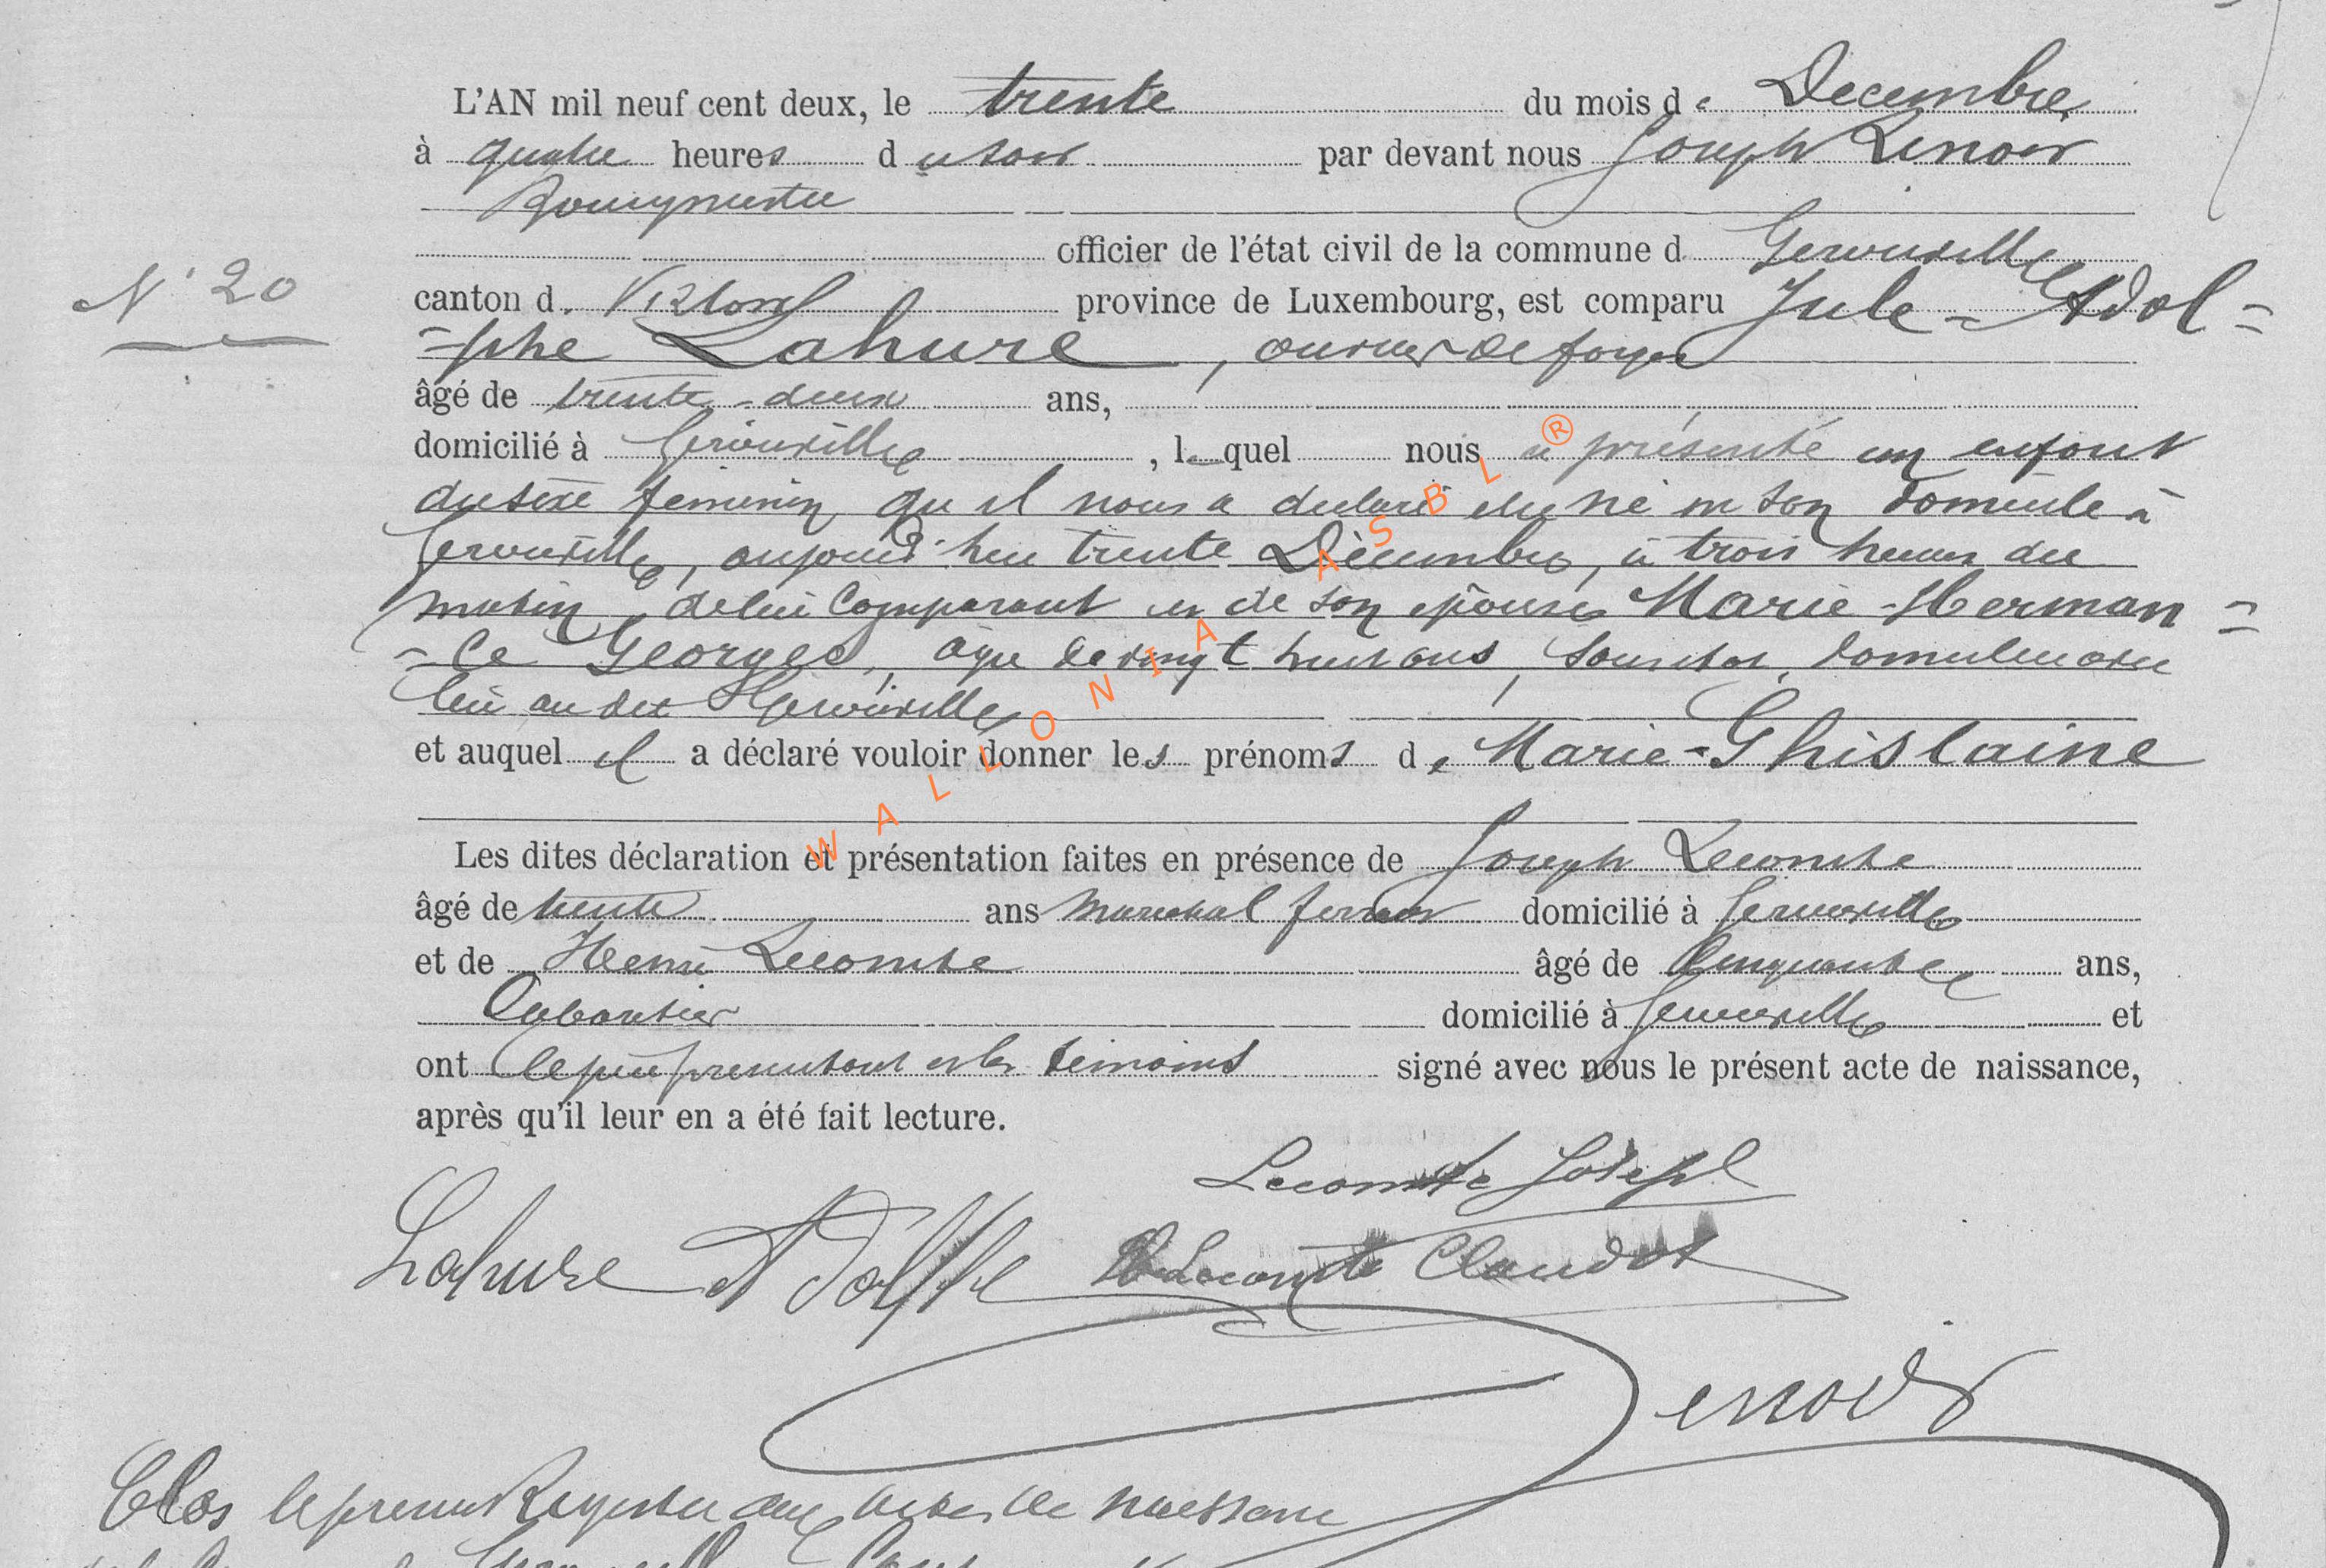 L'AN mil neuf cent deux, le trente du mois de Decembre
à quatre heures du soir par devant nous Joseph Lenoir
Bourgmestre
officier de l'état civil de la commune d Gerouville
N° 20
canton d. Virton province de Luxembourg, est comparu Jule-Adol=
=phe Lahure, ouvrier de forge
âgé de trente-deux ans,
domicilié à Gérouville, lequel nous a présenté un enfant
du sexe feminin qu'il nous a declaré être né en son domicile à
Gerouville, aujourd'hui trente Décembre, à trois heures du
matin, de lui Comparant et de son épouse Marie-Herman=
=ce Georges, agée de vingt huit ans, domiciliée avec
lui au dit Gerouville
et auquel il a déclaré vouloir donner les prénoms de Marie-Ghislaine
Les dites déclaration et présentation faites en présence de Joseph Lecomte
âgé de trente ans marechal ferrant domicilié à Gerouville
et de Henri Lecomte âgé de Cinquante ans,
Cabaretier domicilié à Gerouville et
ont le père présentant et les témoins signé avec nous le présent acte de naissance,
après qu'il leur en a été fait lecture.
Lecomte Joseph
Lahure Adolphe H Lecomte Claudot
Lenoir
Clos le présent Registre aux actes de naissance
WALLONIA ASBL ®